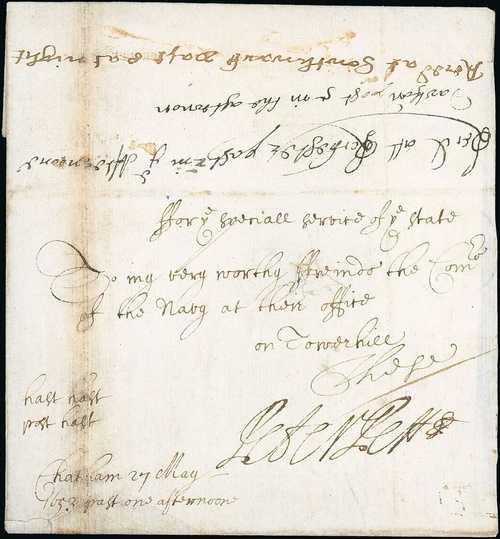 ffor yᵉ speciall service of yᵉ state
To my very worthy ffreinds the Comʳˢ
of the Navy at their office
on Towerhill
These
hast hast
post hast
Peter Pett
Chatham 27 May
1653 past one afternoone
Recd at Southwark past 8 at night
Dartford past 5 in the afternon
Recd att Rochester past in yᵉ Afternoone